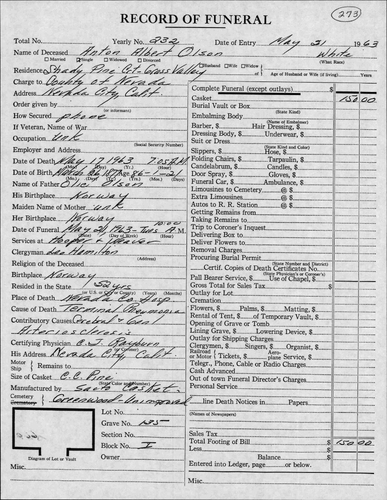 RECORD OF FUNERAL
273
Total No. Yearly No. 232 Date of Entry May 21 1963
Name of Deceased Anton Albert Olson White
Married Single Widowed Divorced Husband Widow (What Race)
Residence Shady Pine Ct- Grass Valley Age of Husband or Wife (if living) Years
Charge to County of Nevada
Address Nevada City Calif.
Order given by
(or informant)
How Secured phone
If Veteran, of War
Occupation Unk
(Social Security Number)
Employer and Address
Date of Death May 17 1963 7:05 P.M.
Date of Birth
Name of Father Olson
His Birthplace Norway
Maiden Name of Mother Unk
Her Birthplace Norway
Date of Funeral May 21 1963-Tues
Services at Hooper & Weaver
Clergyman Leo Hamilton
Religion of the Deceased
Birthplace Norway
Resided in the State 52 yrs
Place of Death Nevada Co Hosp
Cause of Death Terminal Pneumonia
Contributory Causes Cerebral & Gen'l
Certifying Physician
His Address Nevada City Calif
Motor
Ship Remains to
Size of Casket C.C. Pine
(State Color and Number)
Manufactured by Casket
Cemetery
Greenwood-Unimproved
Lot No.
Grave No. 185
Section No.
Block No. I
Diagram of Lot or Vault
Misc.
Complete Funeral (except outlays) $
Casket 150.00
Burial Vault or Box
(State Kind)
Embalming Body
Barber, $ Hair Dressing, $
Dressing Body, $ Underwear, $
Suit or Dress
(State Kind and Color)
Slippers, $ Hose, $
Folding Chairs, $ Tarpolin, $
Candelabrum, $ Candles, $
Door Spray, $ Gloves, $
Funeral Car, $ Ambulance, $
Limousines to Cemetery @ $
Extra Limousines @ $
Autos to R. R. Station @ $
Getting Remains from
Taking Remains to
Trip to Coroner's Inquest
Delivering Box to
Deliver Flowers to
Removal Charges
Procuring Burial Permit
(State Number and District)
Certif. Copies of Death Certificates No.
Pall Bearer Service, $ Use of Chapel, $
Gross Total for Sales Tax $
Outlay for Lot
Cremation
Flowers, $ Palms, $ Matting, $
Rental of Tent, $ of Temporary Vault, $
Opening of Grave or Tomb
Lining Grave, $ Lowering Device, $
Outlay for Shipping Charges
Clergymen, $ Singers, $ Organist, $
Railroad or Motor Tickets, $ Aeroplane Service, $
Telegr., Phone, Cable or Radio Charges
Cash Advanced
Out of town Funeral Director's Charges
Personal Service
line Death Notices in Papers
(Names of Newspapers)
Sales Tax
Total Footing of Bill $ 150.00
Less $
Balance $
Entered into Ledger, page or below.
Misc.